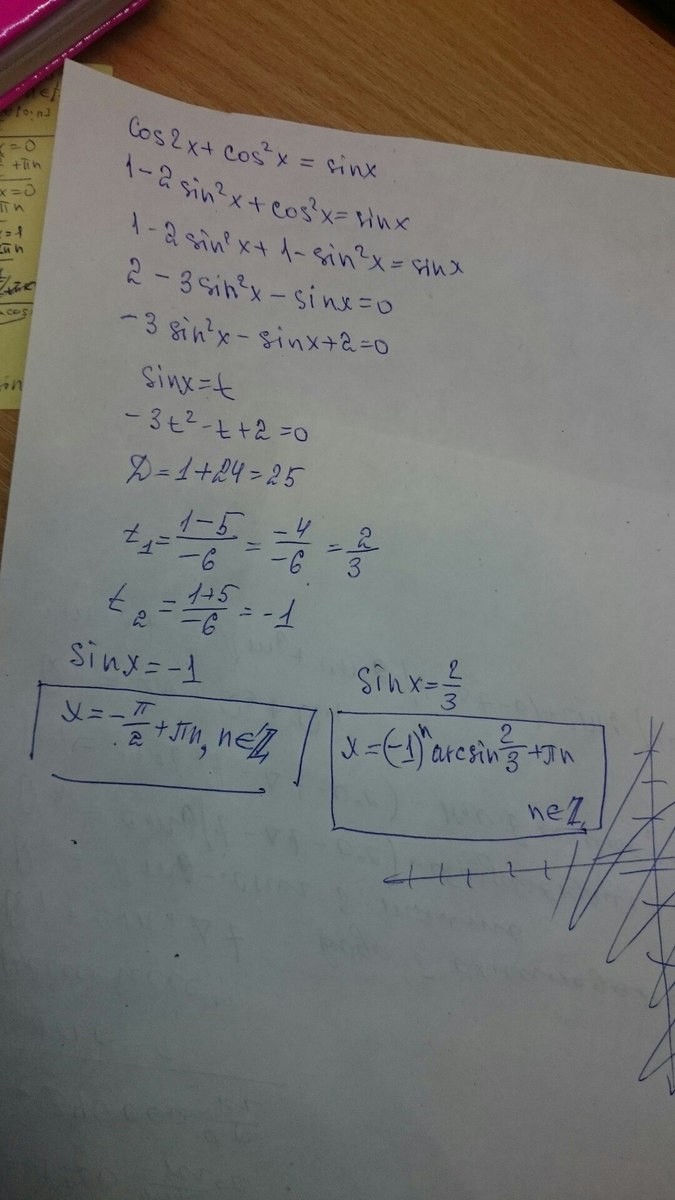 cos2x + cos²x = sinx
1 - 2 sin²x + cos²x = sinx
1 - 2 sin²x + 1 - sin²x = sinx
2 - 3 sin²x - sinx = 0
-3 sin²x - sinx + 2 = 0
sinx = t
-3t² - t + 2 = 0
D = 1 + 24 = 25
t₁ = (1-5)/(-6) = (-4)/(-6) = 2/3
t₂ = (1+5)/(-6) = -1
sinx = -1
x = -π/2 + πn, n∈Z
sinx = 2/3
x = (-1)ⁿ arcsin 2/3 + πn
n∈Z
x=0
+πn
x=0
πn
x=1